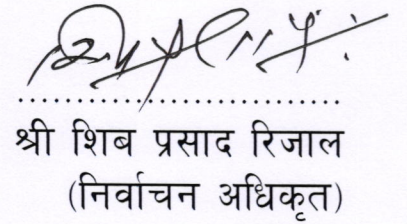 श्री शिब प्रसाद रिजाल
(निर्वाचन अधिकृत)